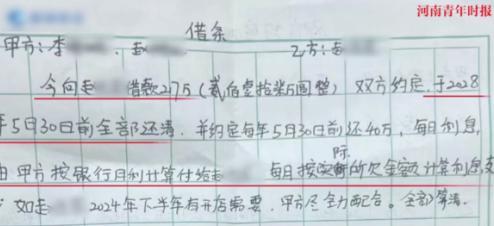 河南青年时报
借条
甲方：李 、 乙方：
今向 借款217万（贰佰壹拾柒万圆整） 双方约定，于2028
年5月30日前全部还清，并约定每年5月30日前还40万，每月利息，
由甲方按银行月利计算付给 每月按实际所欠金额计算利息，
如 2024年下半年有开店需要，甲方尽全力配合。全部算清。